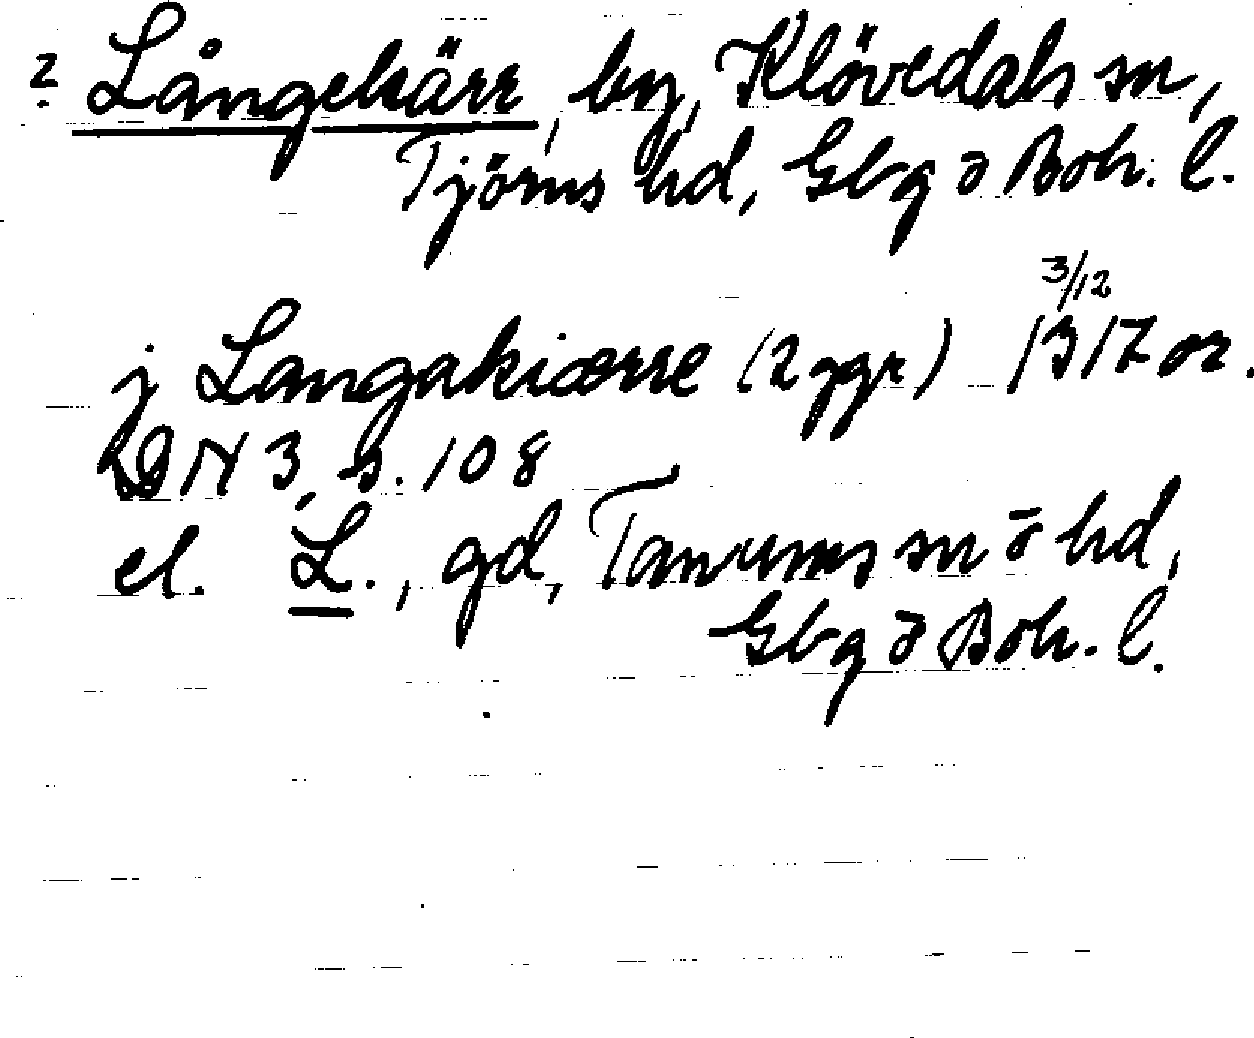 ? Långekärr, by, Klövedals sn,
Tjörns hd, Gbg o Boh. l.
j Langakiærre (2 ggr) 3/12 1317 or.
DN 3, s. 108
el. L., gd, Tanums sn o hd,
Gbg o Boh. l.